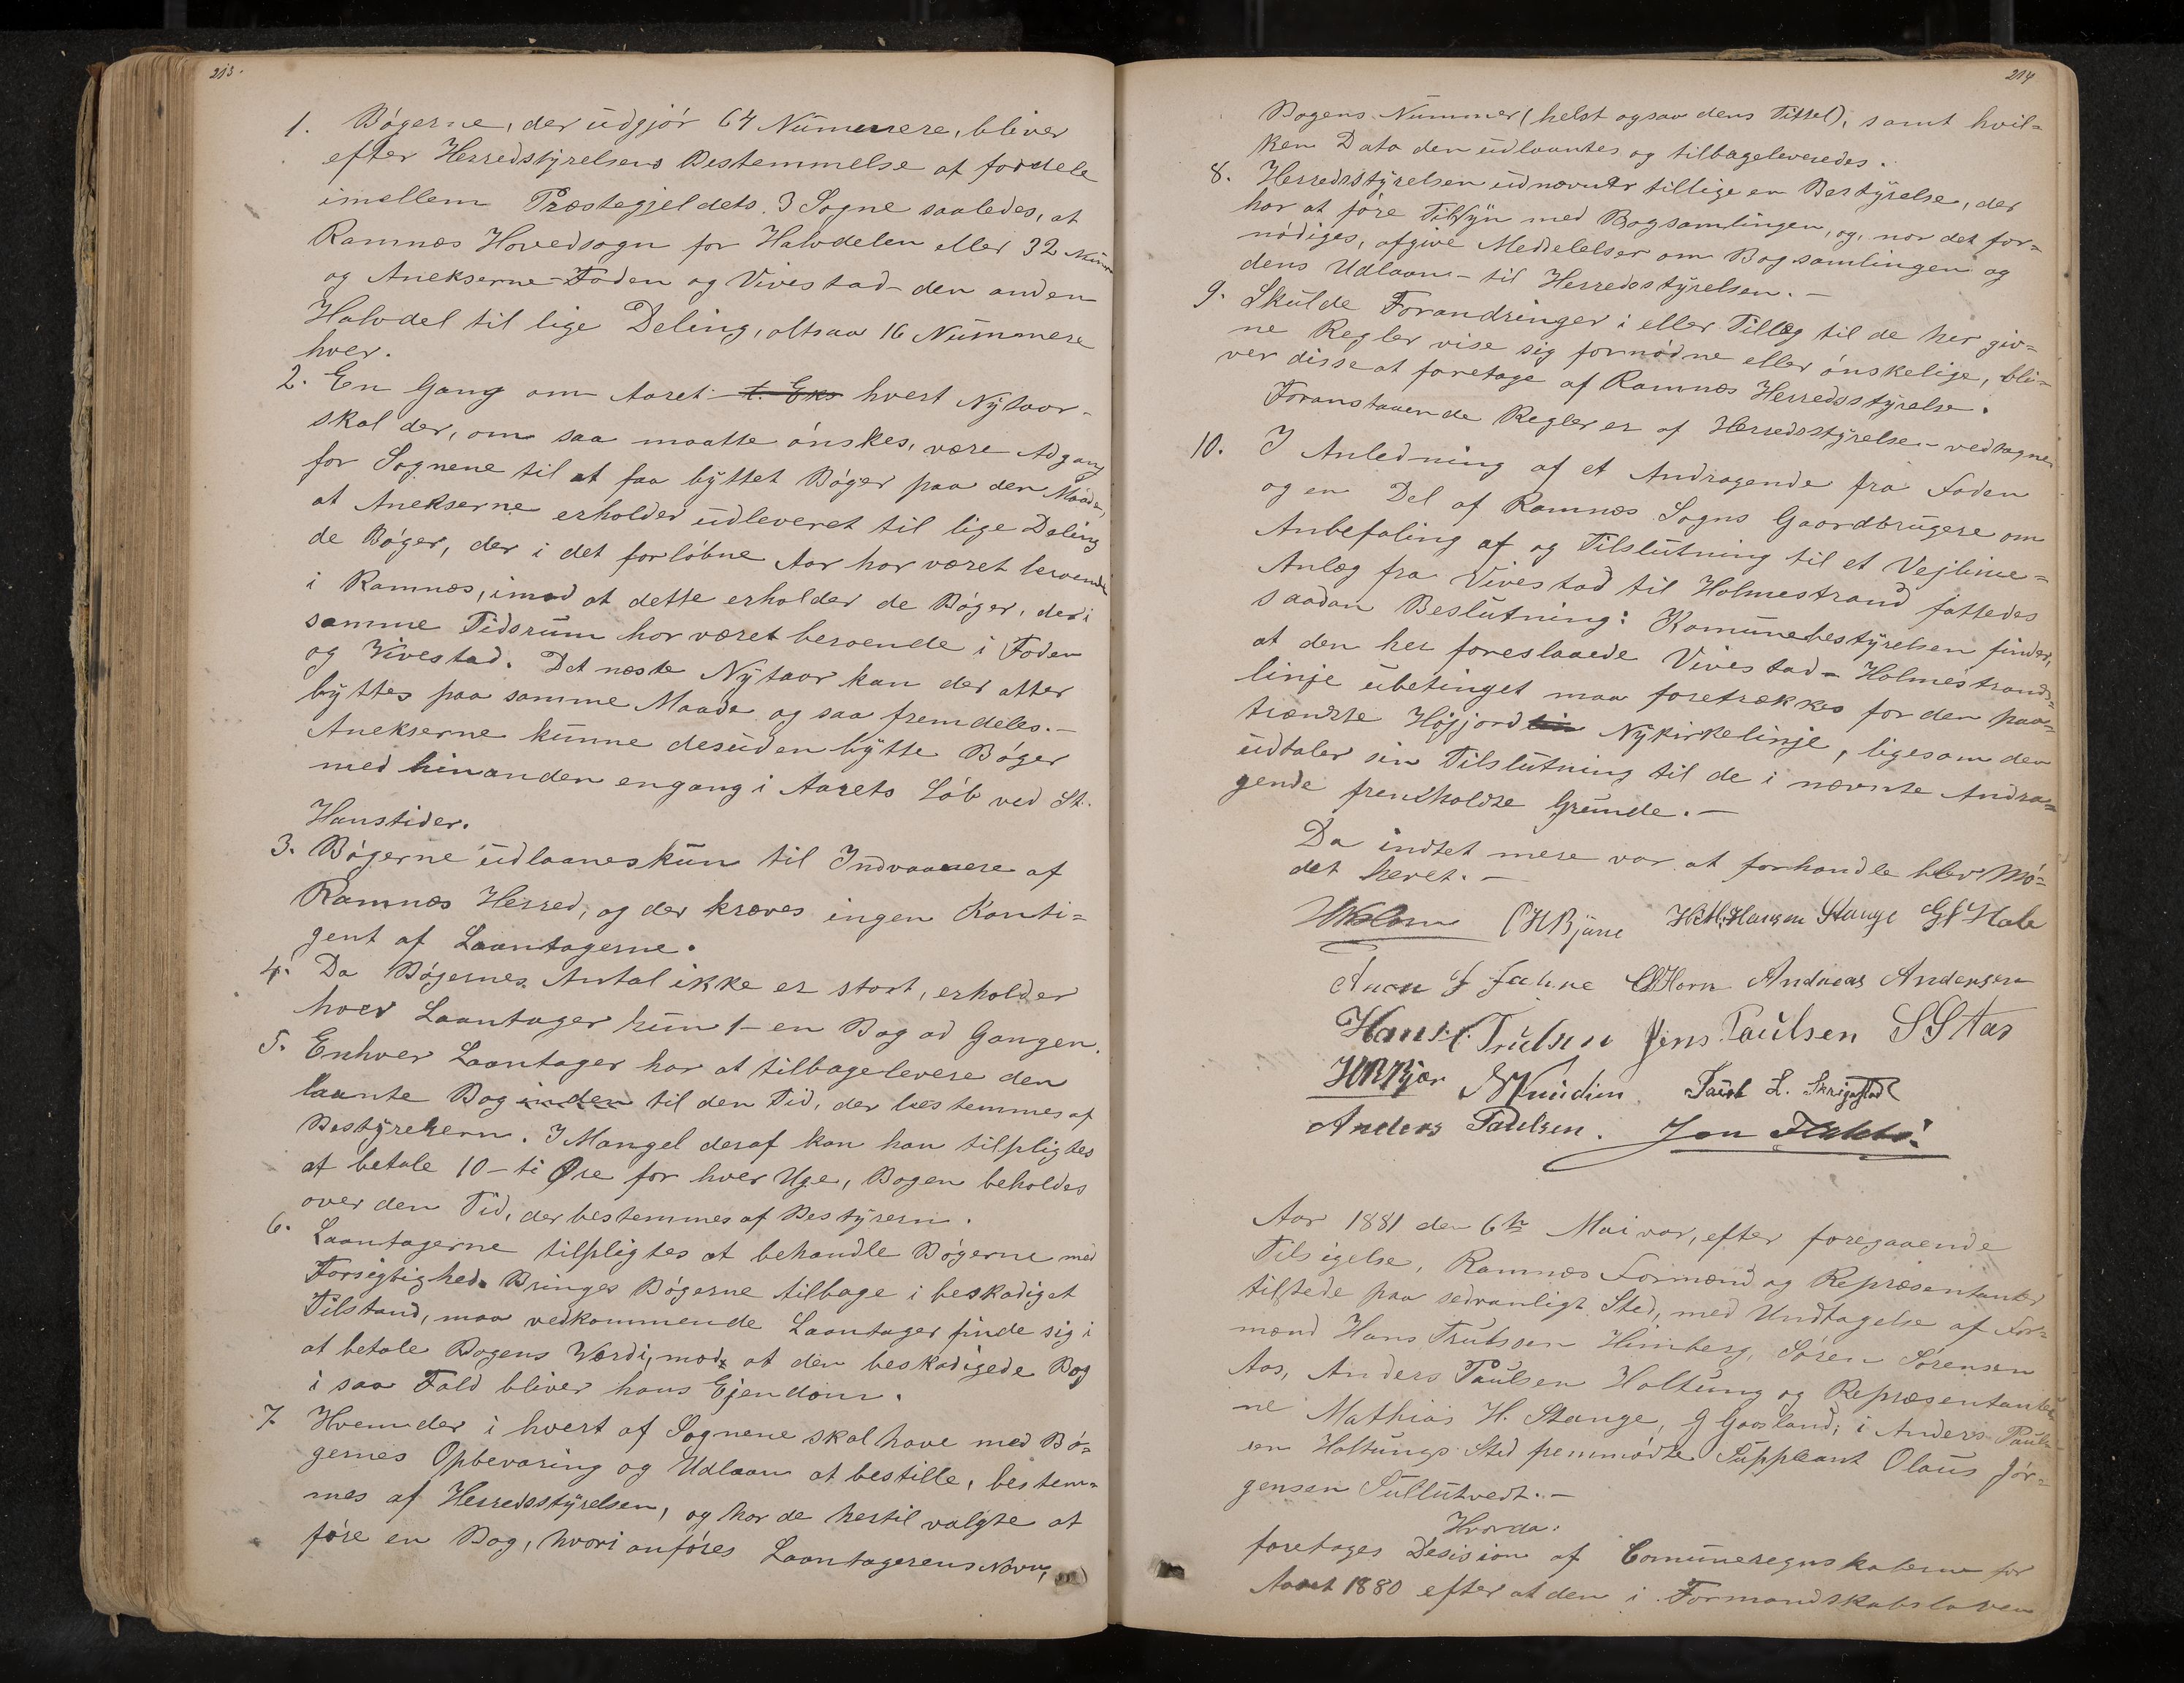 213.
1. Bøgerne, der udgjør 64 Numere, bliver
efter Herredstyrelsens Bestemmelse at fordele
imellem Præstegjeldets 3 Sogne saaledes, at
Ramnæs Hovedsogn for Halvdelen eller 32 Num̄r
og Anekserne – Foden og Vivestad – den anden
Halvdel til lige Deling, altsaa 16 Nummere
hver.
2. En Gang om Aaret t. Eks hvert Nytaar –
skal der, om saa maatte ønskes, være Adgang
for Sognene til at faa byttet Bøger paa den Maade,
at Anekserne erholder udleveret til lige Deling
de Bøger, der i det forløbne Aar har været beroende
i Ramnæs, imod at dette erholder de Bøger, der i
samme Tidsrum har været beroende i Foden
og Vivestad. Det næste Nytaar kan der atter
byttes paa samme Maade og saa fremdeles. –
Anekserne kunne desuden bytte Bøger
med hinanden engang i Aarets Løb ved St.
Hanstider.
3. Bøgerne udlaanes kun til Indvaanere af
Ramnæs Herred, og der kræves ingen Konti=
gent af Laantagerne.
4. Da Bøgernes Antal ikke er stort, erholder
hver Laantager kun 1 – en Bog ad Gangen.
5. Enhver Laantager har at tilbagelevere den
laante Bog inden til den Tid, der bestemmes af
Bestyreren. I Mangel deraf kan han tilpligtes
at betale 10 – ti Øre for hver Uge, Bogen beholdes
over den Tid, der bestemmes af Bestyreren.
6. Laantagerne tilpligtes at behandle Bøgerne med
Forsigtighed. Bringes Bøgerne tilbage i beskadiget
Tilstand, maa vedkommende Laantager finde sig i
at betale Bogens Værdi, mod at den beskadigede Bog
i saa Fald bliver hans Ejendom.
7. Hvem der i hvert af Sognene skal have med Bø=
gernes Opbevaring og Udlaan at bestille, bestem=
mes af Herredsstyrelsen, og har de hertil valgte at
føre en Bog, hvori anføres Laantagerens Navn,
214
Bogens Nummer (helst ogsaa dens Tittel), samt hvil=
ken Dato den udlaantes og tilbageleveredes.
8. Herredsstyrelsen udnævner tillige en Bestyrelse, der
har at føre Tilsyn med Bogsamlingen, og, naar det for=
nødiges, afgive Meddelelser om Bogsamlingen og
dens Udlaan – til Herredsstyrelsen. –
9. Skulde Forandringer i eller Tillæg til de her giv=
ne Regler vise sig fornødne eller ønskelige, bli=
ver disse at foretage af Ramnæs Herredsstyrelse.
Foranstaaende Regler er af Herredsstyrelsen vedtagne.
10. I Anledning af et Andragende fra Foden
og en Del af Ramnæs Sogns Gaardbrugere om
Anbefaling af og Tilslutning til et Vejlinie=
Anlæg fra Vivestad til Holmestrand fattedes
saadan Beslutning: Komunebestyrelsen finder,
at den her foreslaaede Vivestad – Holmestrands=
linje ubetinget maa foretrækkes for den paa=
tænkte Højjord lin Nykirkelinje, ligesom den
udtaler sin Tilslutning til de i nævnte Andra=
gende fremholdte Grunde. –
Da indtet mere var at forhandle blev Mø=
det hevet. –
CHBjune H. M. Hansen Stange
CHorn Andreas Andersen
Hans Trulsen Jens Paulsen SSAas
Jacob L.
Anders Paulsen. Jon
Aar 1881 den 6te Mai var, efter foregaaende
Tilsigelse, Ramnæs Formænd og Repræsentanter
tilstede paa sedvanligt Sted, med Undtagelse af For=
mænd Hans Trulssen Himberg, Søren Sørensen
Aas, Anders Paulsen Holtung og Repræsentanter=
ne Mathias H. Stange, G Gaasland; i Anders Paul=
sen Holtungs Sted fremmødte Suppleant Olaus Jør=
gensen Sullutvedt. –
Hvorda:
foretages Desision af Comuneregnskaberne for
Aaret 1880 efter at den i Formandskabsloven